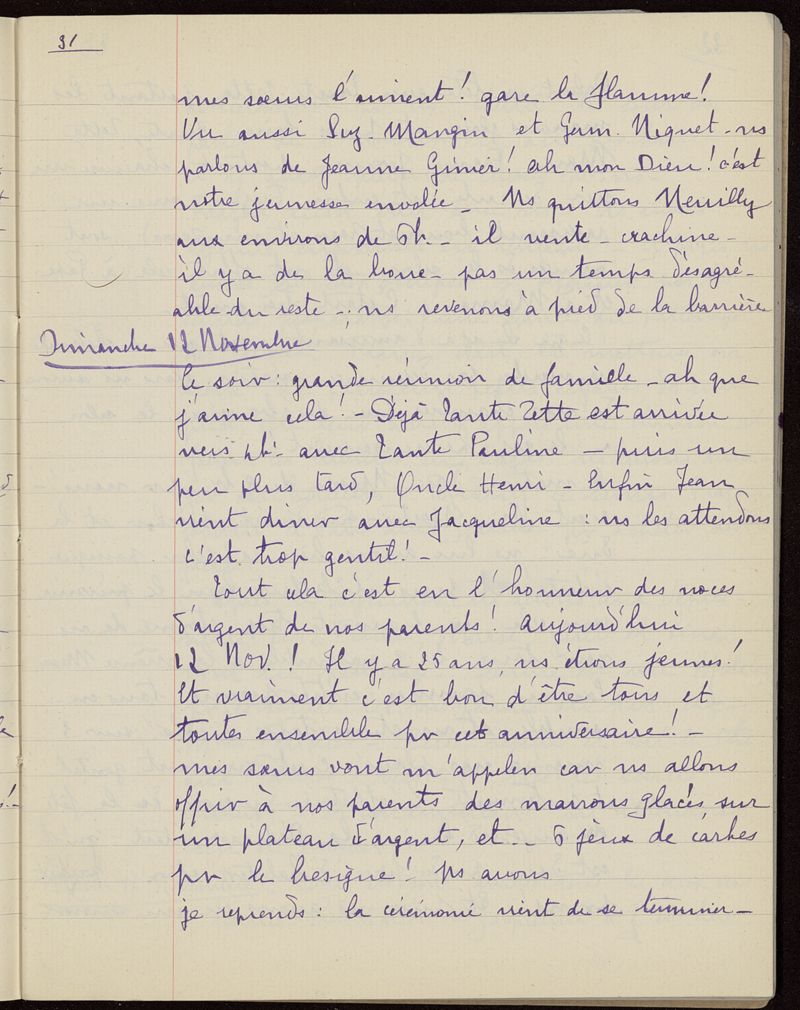 31
mes sœurs l'aiment! gare la flamme!
Vu aussi Suz. Mangin et Germ. Niquet - ns
parlons de Jeanne Ginier! ah mon Dieu! c'est
notre jeunesse envolée - Ns quittons Neuilly
aux environs de 6h - il vente - crachine -
il y a de la boue - pas un temps désagré-
able du reste - ; ns revenons à pied de la barrière
Dimanche 12 Novembre
le soir : grande réunion de famille - ah que
j'aime cela! - Déjà Tante Zette est arrivée
vers 4h. avec Tante Pauline - puis un
peu plus tard, Oncle Henri - Enfin Jean
vient diner avec Jacqueline : ns les attendons
c'est trop gentil! -
Tout cela c'est en l'honneur des noces
d'argent de nos parents! aujourd'hui
12 Nov.! Il y a 25 ans, ns étions jeunes!
Et vraiment c'est bon d'être tous et
toutes ensemble pr cet anniversaire! -
mes sœurs vont m'appeler car ns allons
offrir à nos parents des marrons glacés sur
un plateau d'argent, et - 6 jeux de cartes
pr le besigue! Ns avons
je reprends : la cérémonie vient de se terminer -